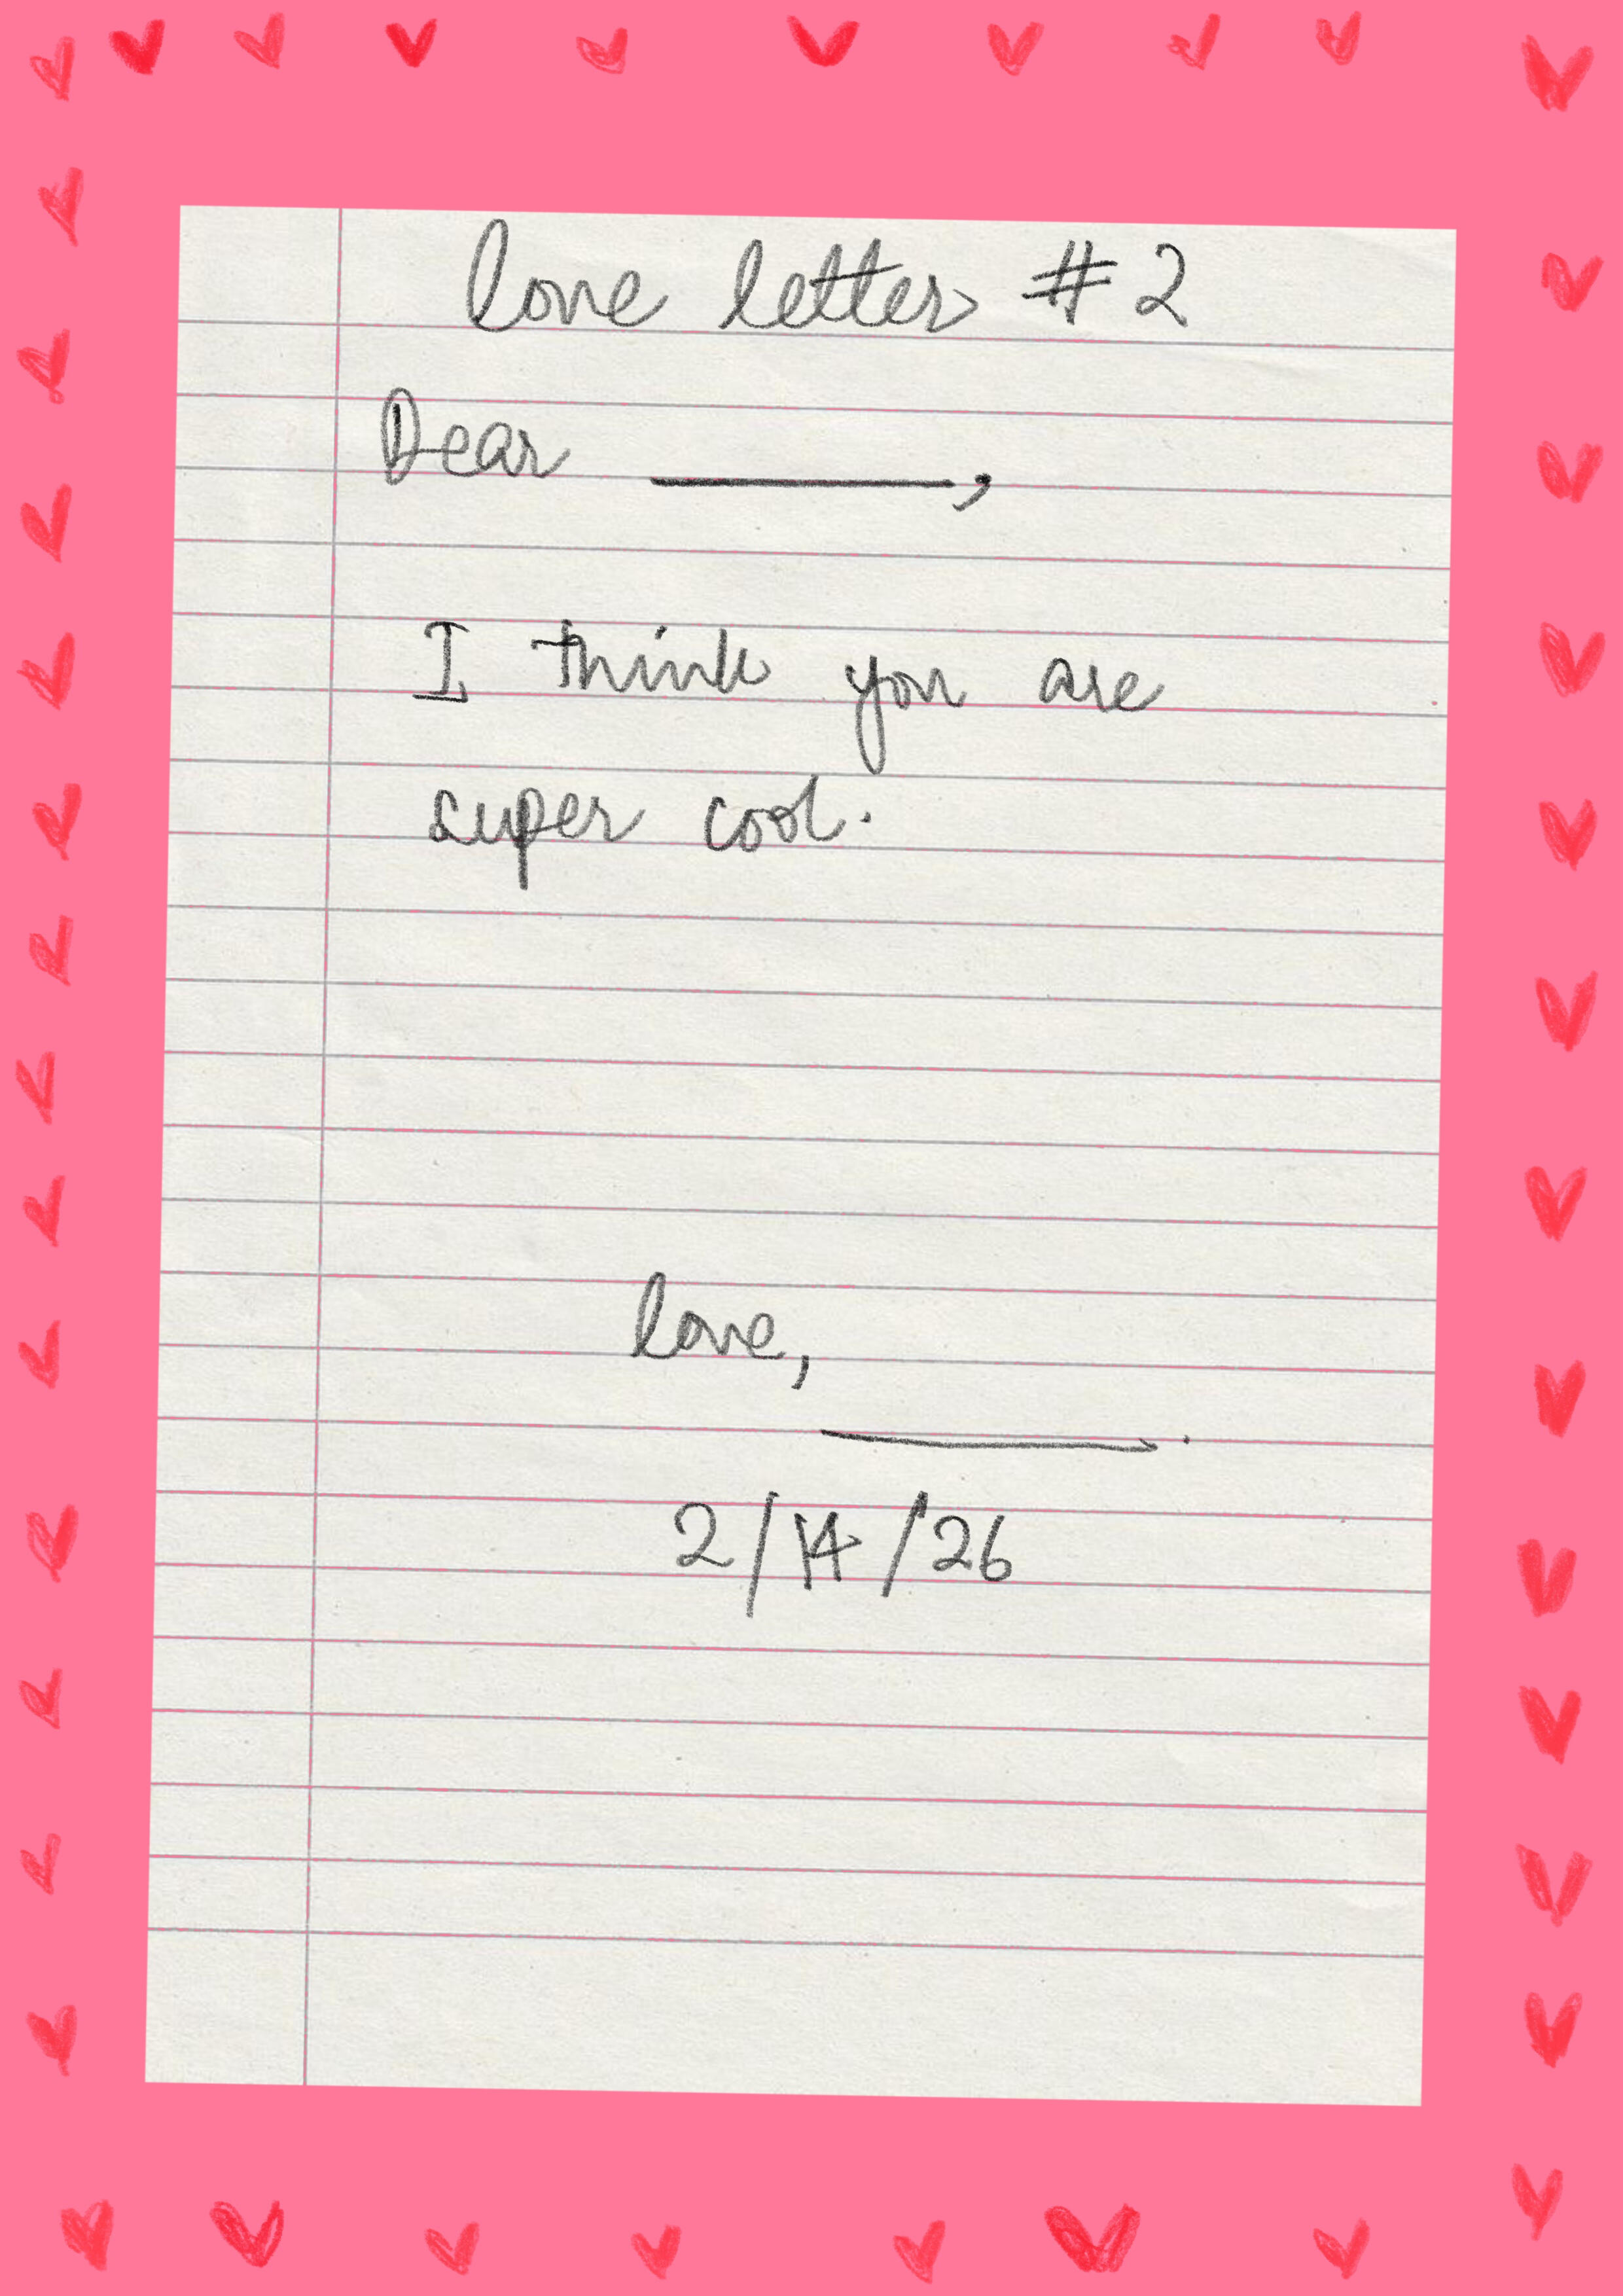 love letter #2
Dear ________,
I think you are
super cool.
love,
________.
2/14/26